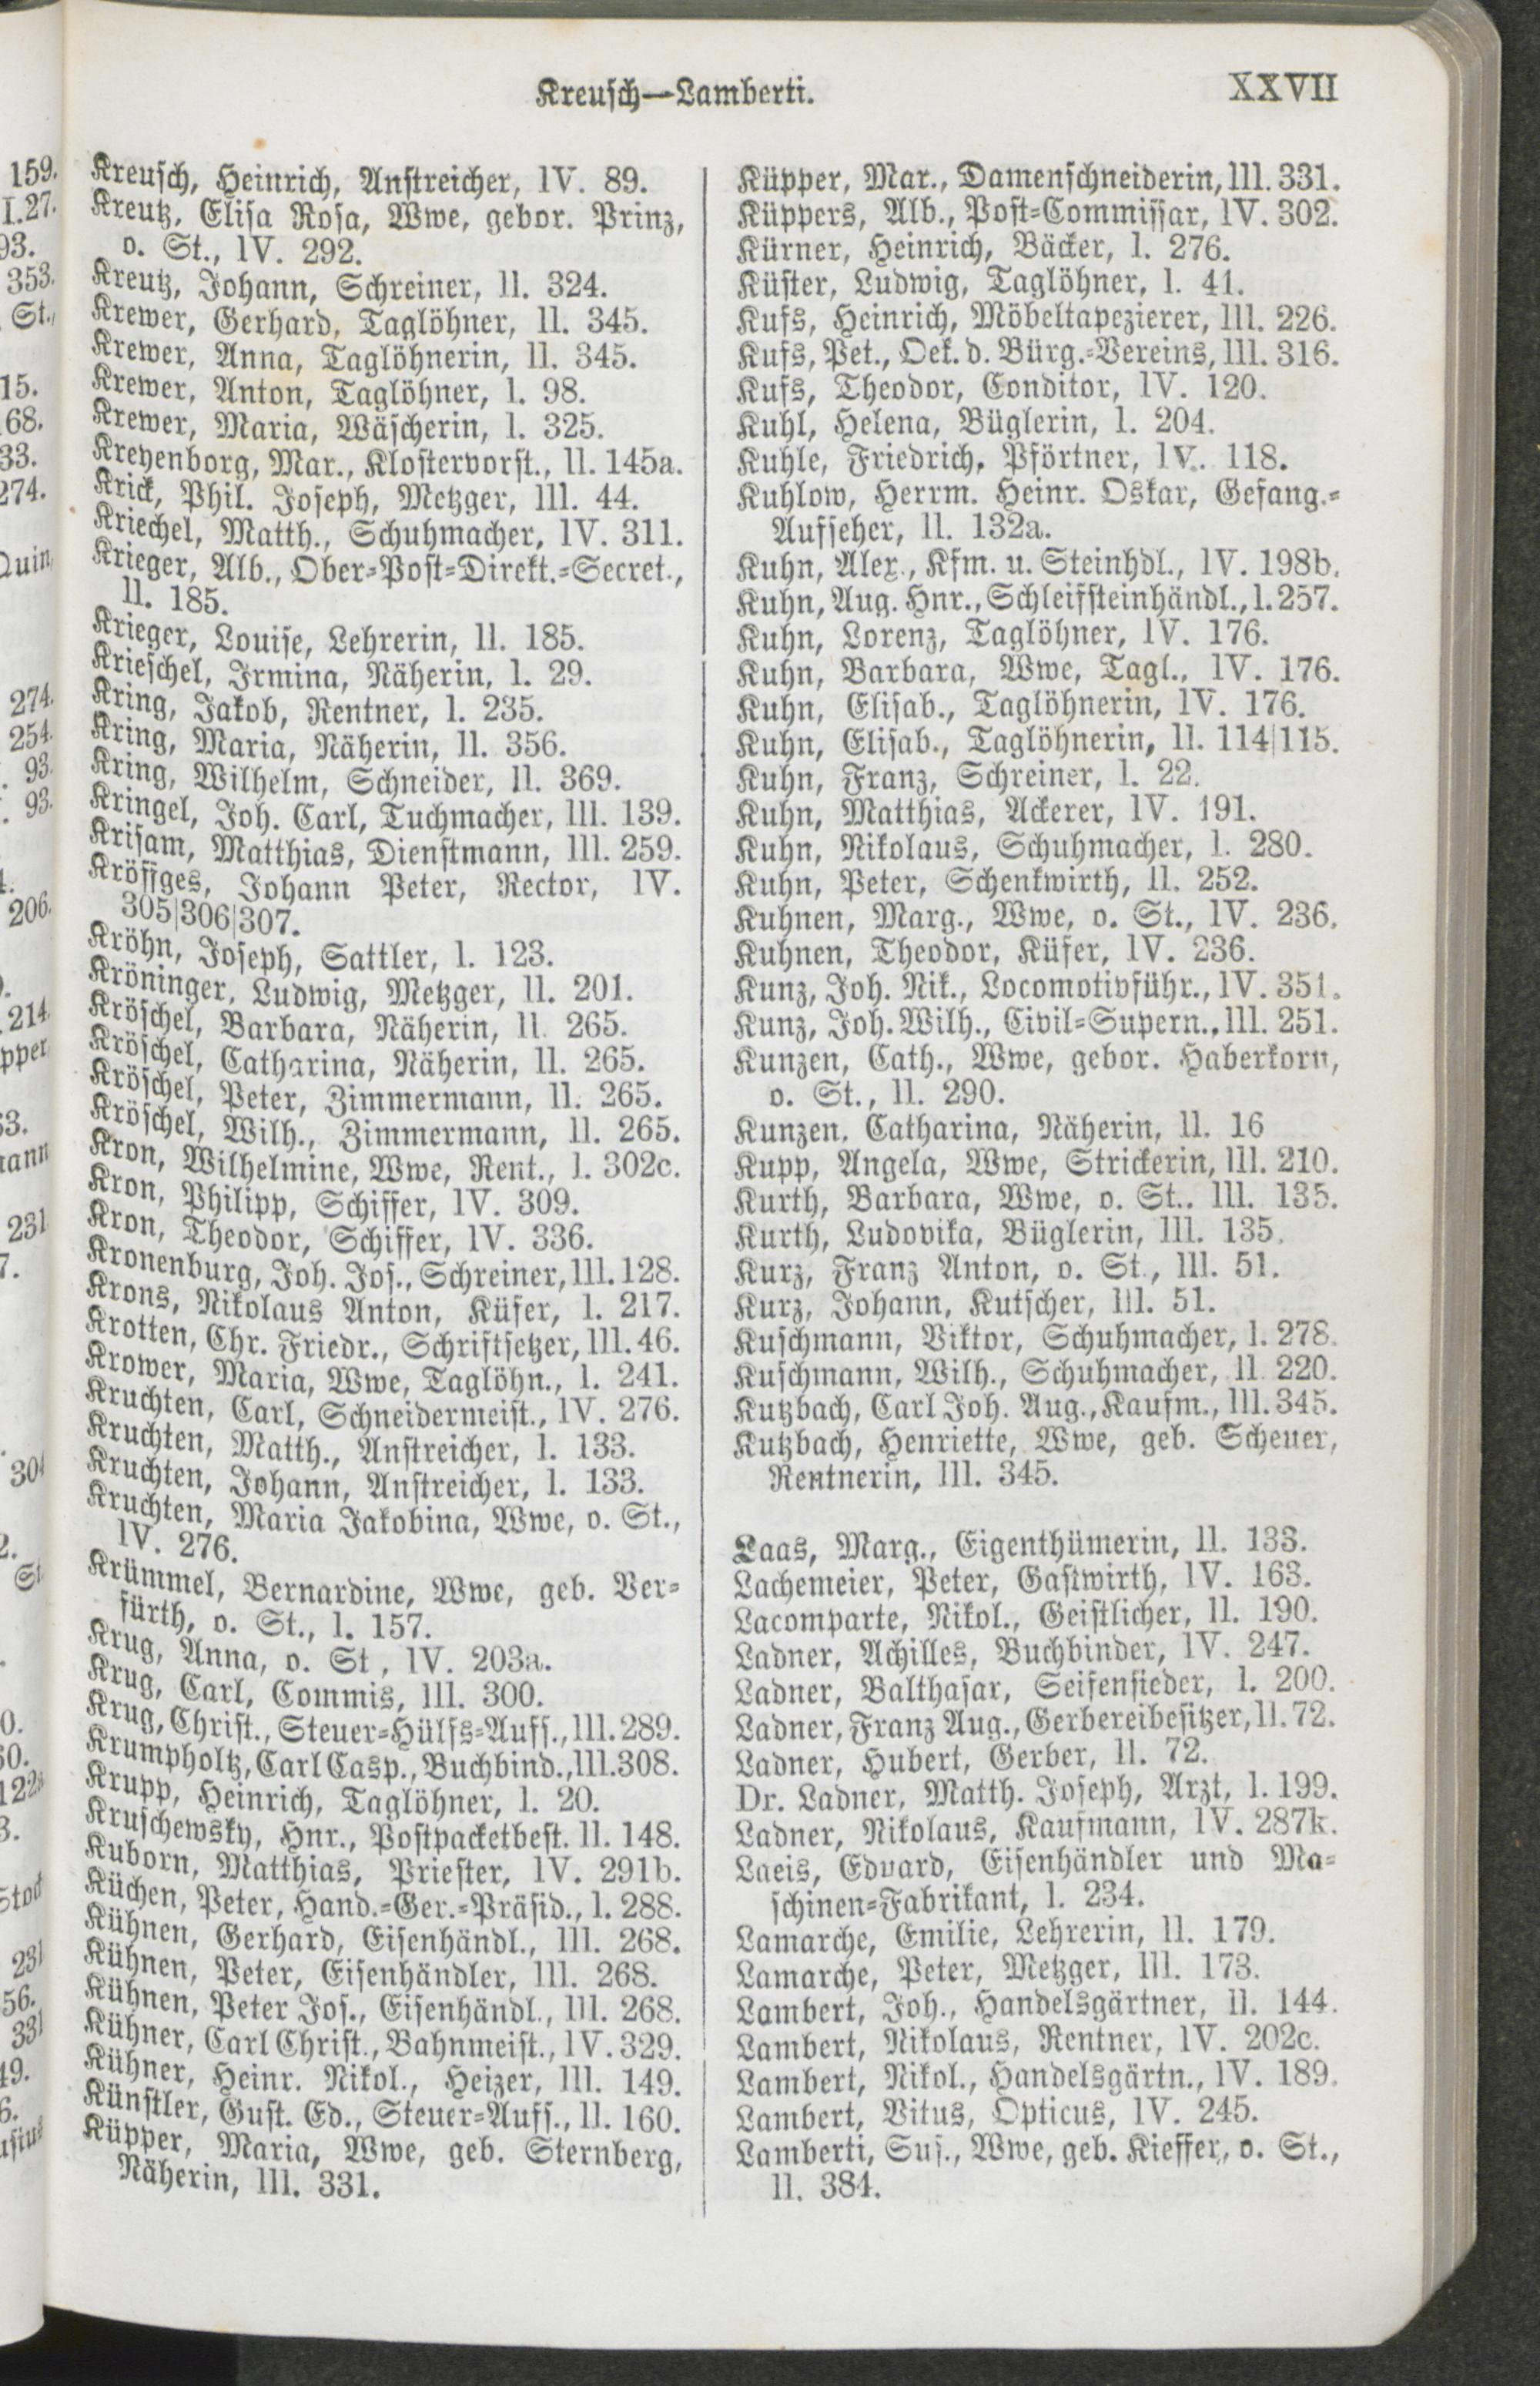 Kreusch—Lamberti.
XXVII
Kreusch, Heinrich, Anstreicher, IV. 89.
Kreutz, Elisa Rosa, Wwe, gebor. Prinz,
o. St., IV. 292.
Kreutz, Johann, Schreiner, II. 324.
Krewer, Gerhard, Taglöhner, II. 345.
Krewer, Anna, Taglöhnerin, II. 345.
Krewer, Anton, Taglöhner, I. 98.
Krewer, Maria, Wäscherin, I. 325.
Kreyenborg, Mar., Klostervorst., II. 145a.
Krick, Phil. Joseph, Metzger, III. 44.
Kriechel, Matth., Schuhmacher, IV. 311.
Krieger, Alb., Ober-Post-Direkt.-Secret.,
II. 185.
Krieger, Louise, Lehrerin, II. 185.
Krieschel, Irmina, Näherin, I. 29.
Kring, Jakob, Rentner, I. 235.
Kring, Maria, Näherin, II. 356.
Kring, Wilhelm, Schneider, II. 369.
Kringel, Joh. Carl, Tuchmacher, III. 139.
Krisam, Matthias, Dienstmann, III. 259.
Kröffges, Johann Peter, Rector, IV.
305|306|307.
Kröhn, Joseph, Sattler, I. 123.
Kröninger, Ludwig, Metzger, II. 201.
Kröschel, Barbara, Näherin, II. 265.
Kröschel, Catharina, Näherin, II. 265.
Kröschel, Peter, Zimmermann, II. 265.
Kröschel, Wilh., Zimmermann, II. 265.
Kron, Wilhelmine, Wwe, Rent., I. 302c.
Kron, Philipp, Schiffer, IV. 309.
Kron, Theodor, Schiffer, IV. 336.
Kronenburg, Joh. Jos., Schreiner, III. 128.
Krons, Nikolaus Anton, Küfer, I. 217.
Krotten, Chr. Friedr., Schriftsetzer, III. 46.
Krower, Maria, Wwe, Taglöhn., I. 241.
Kruchten, Carl, Schneidermeist., IV. 276.
Kruchten, Matth., Anstreicher, I. 133.
Kruchten, Johann, Anstreicher, I. 133.
Kruchten, Maria Jakobina, Wwe, o. St.,
IV. 276.
Krümmel, Bernardine, Wwe, geb. Ver-
fürth, o. St., I. 157.
Krug, Anna, o. St, IV. 203a.
Krug, Carl, Commis, III. 300.
Krug, Christ., Steuer-Hülfs-Auff., III. 289.
Krumpholtz, Carl Casp., Buchbind., III.308.
Krupp, Heinrich, Taglöhner, I. 20.
Kruschewsky, Hnr., Postpacketbest. II. 148.
Kuborn, Matthias, Priester, IV. 291b.
Küchen, Peter, Hand.-Ger.-Präsid., I. 288.
Kühnen, Gerhard, Eisenhändl., III. 268.
Kühnen, Peter, Eisenhändler, III. 268.
Kühnen, Peter Jos., Eisenhändl., III. 268.
Kühner, Carl Christ., Bahnmeist., IV. 329.
Kühner, Heinr. Nikol., Heizer, III. 149.
Künstler, Gust. Ed., Steuer-Auff., II. 160.
Küpper, Maria, Wwe, geb. Sternberg,
Näherin, III. 331.
Küpper, Mar., Damenschneiderin, III. 331.
Küppers, Alb., Post-Commissar, IV. 302.
Kürner, Heinrich, Bäcker, I. 276.
Küster, Ludwig, Taglöhner, I. 41.
Kufs, Heinrich, Möbeltapezierer, III. 226.
Kufs, Pet., Oek. d. Bürg.-Vereins, III. 316.
Kufs, Theodor, Conditor, IV. 120.
Kuhl, Helena, Büglerin, I. 204.
Kuhle, Friedrich, Pförtner, IV. 118.
Kuhlow, Herrm. Heinr. Oskar, Gefang.-
Aufseher, II. 132a.
Kuhn, Alex., Kfm. u. Steinhdl., IV. 198b.
Kuhn, Aug. Hnr., Schleifsteinhändl., I. 257.
Kuhn, Lorenz, Taglöhner, IV. 176.
Kuhn, Barbara, Wwe, Tagl., IV. 176.
Kuhn, Elisab., Taglöhnerin, IV. 176.
Kuhn, Elisab., Taglöhnerin, II. 114|115.
Kuhn, Franz, Schreiner, I. 22.
Kuhn, Matthias, Ackerer, IV. 191.
Kuhn, Nikolaus, Schuhmacher, I. 280.
Kuhn, Peter, Schenkwirth, II. 252.
Kuhnen, Marg., Wwe, o. St., IV. 236.
Kuhnen, Theodor, Küfer, IV. 236.
Kunz, Joh. Nik., Locomotivführ., IV. 351.
Kunz, Joh. Wilh., Civil-Supern., III. 251.
Kunzen, Cath., Wwe, gebor. Haberkorn,
o. St., II. 290.
Kunzen, Catharina, Näherin, II. 16
Kupp, Angela, Wwe, Strickerin, III. 210.
Kurth, Barbara, Wwe, o. St.. III. 135.
Kurth, Ludovika, Büglerin, III. 135.
Kurz, Franz Anton, o. St., III. 51.
Kurz, Johann, Kutscher, III. 51.
Kuschmann, Viktor, Schuhmacher, I. 278.
Kuschmann, Wilh., Schuhmacher, II. 220.
Kutzbach, Carl Joh. Aug., Kaufm., III. 345.
Kutzbach, Henriette, Wwe, geb. Scheuer,
Rentnerin, III. 345.
Laas, Marg., Eigenthümerin, II. 133.
Lachemeier, Peter, Gastwirth, IV. 163.
Lacomparte, Nikol., Geistlicher, II. 190.
Ladner, Achilles, Buchbinder, IV. 247.
Ladner, Balthasar, Seifensieder, I. 200.
Ladner, Franz Aug., Gerbereibesitzer, II. 72.
Ladner, Hubert, Gerber, II. 72.
Dr. Ladner, Matth. Joseph, Arzt, I. 199.
Ladner, Nikolaus, Kaufmann, IV. 287k.
Laeis, Eduard, Eisenhändler und Ma-
schinen-Fabrikant, I. 234.
Lamarche, Emilie, Lehrerin, II. 179.
Lamarche, Peter, Metzger, III. 173.
Lambert, Joh., Handelsgärtner, II. 144.
Lambert, Nikolaus, Rentner, IV. 202c.
Lambert, Nikol., Handelsgärtn., IV. 189.
Lambert, Vitus, Opticus, IV. 245.
Lamberti, Sus., Wwe, geb. Kieffer, o. St.,
II. 384.